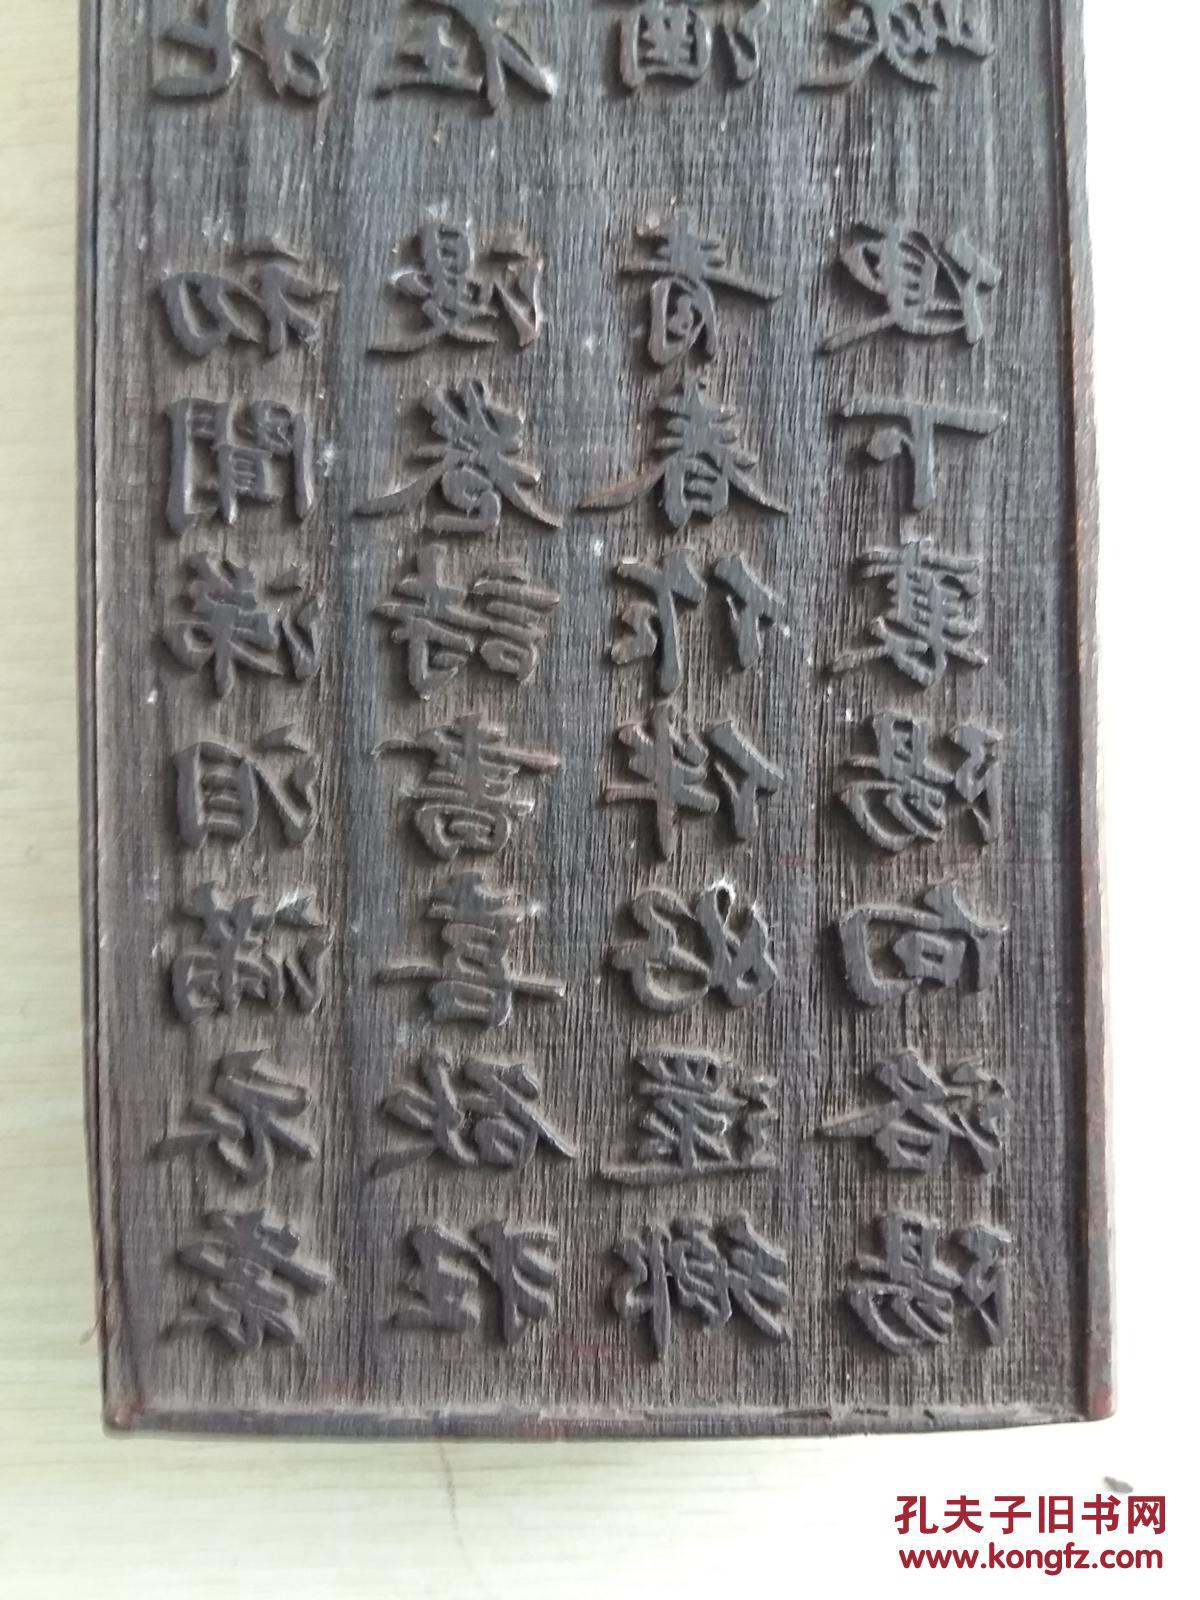 北初聞涕泪滿衣裳
在漫卷詩書喜欲狂
酒青春作伴好還鄉
峽便下襄陽向洛陽
孔夫子旧书网
www.kongfz.com